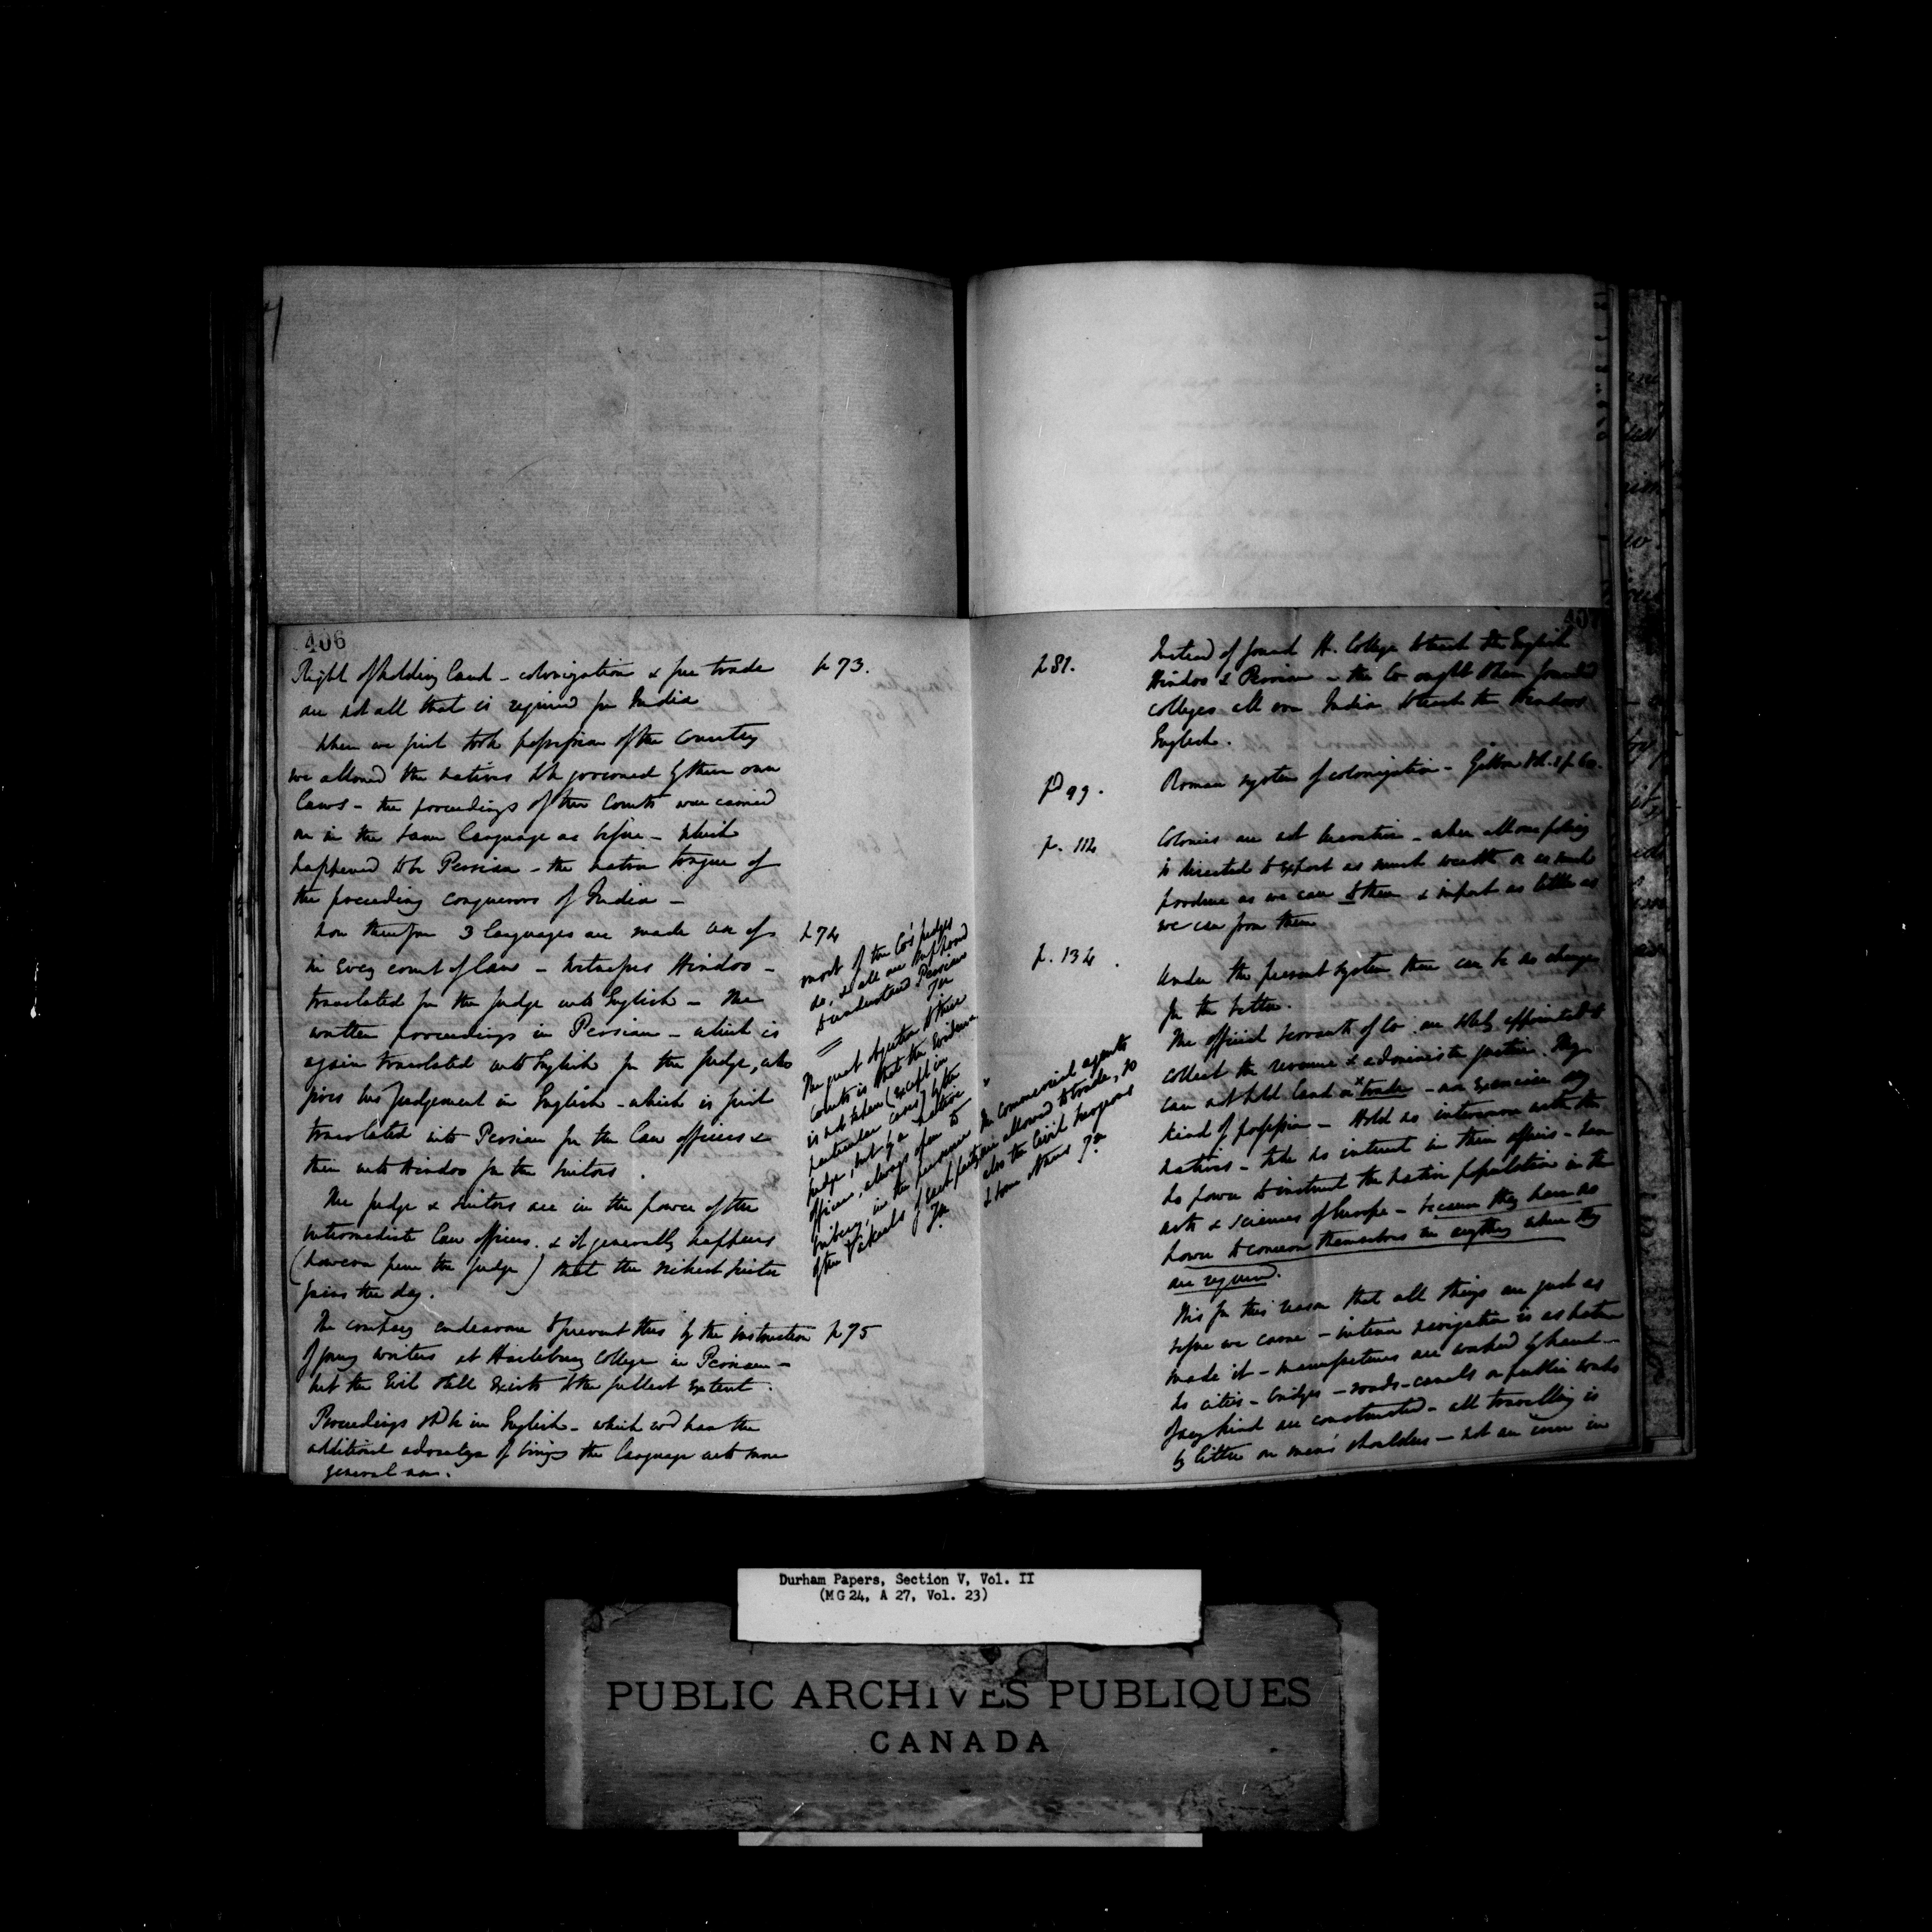 406
Right of holding land - colonization & free trade
are not all that is required for India
When we first took possession of the Country
we allowed the natives to be governed by their own
laws - the proceedings of their Courts were carried
on in the same language as before - which
happened to be Persian - the native tongue of
the preceding conquerors of India -
Now therefore 3 languages are made use of
in every court of law - Witnesses Hindoo -
translated for the Judge into English - The
written proceedings in Persian - which is
again translated into English for the Judge, who
gives his Judgement in English - which is first
translated into Persian for the law officers &
then into Hindoo for the Suitors.
The Judge & Suitors are in the power of the
intermediate law officers. & it generally happens
(however pure the Judge) that the richest suitor
gains the day.
The company endeavour to prevent this by the instruction
of young writers at Haileybury College in Persian -
but the Evil still exists to the fullest extent.
Proceedings shd be in English - which wd have the
additional advantage of bringing the language into more
general use.
p 73.
p 74
most of the Co's judges
do, & all are supposed
to understand Persian
The great objection to these
courts is that the Evidence
is not taken (except in
particular cases) by the
Judge, but by a native
officer, always open to
bribery, in the presence
of the Vakeels of each party
p 75
x The commercial agents
are allowed to trade, so
also the Civil Surgeons
& some others
407
p 81.
Instead of found H. College to teach the English
Hindoo & Persian - the Co ought to have founded
colleges all over India to teach the Hindoos
English.
p 99.
Roman system of colonization - Gibbon
p. 112
Colonies are not lucrative - when all our policy
is directed to export as much wealth or as much
produce as we can to them & import as little as
we can from them
p. 134.
Under the present system there can be no change
for the better.
The official servants of Co. are solely appointed to
collect the revenue & administer justice. They
can not hold land or x trade - nor exercise any
kind of profession - Hold no intercourse with the
natives - take no interest in their affairs - have
no power to instruct the native population in the
arts & sciences of Europe - because they have no
power to concern themselves in anything where they
are required.
Tis for this reason that all things are just as
before we came - interior navigation is as nature
made it - manufactures are worked by hand -
no cities - bridges - roads - canals or public works
of any kind are constructed - all travelling is
by litter on men's shoulders - not an inn in
Durham Papers, Section V, Vol. II
(MG 24, A 27, Vol. 23)
PUBLIC ARCHIVES PUBLIQUES
CANADA